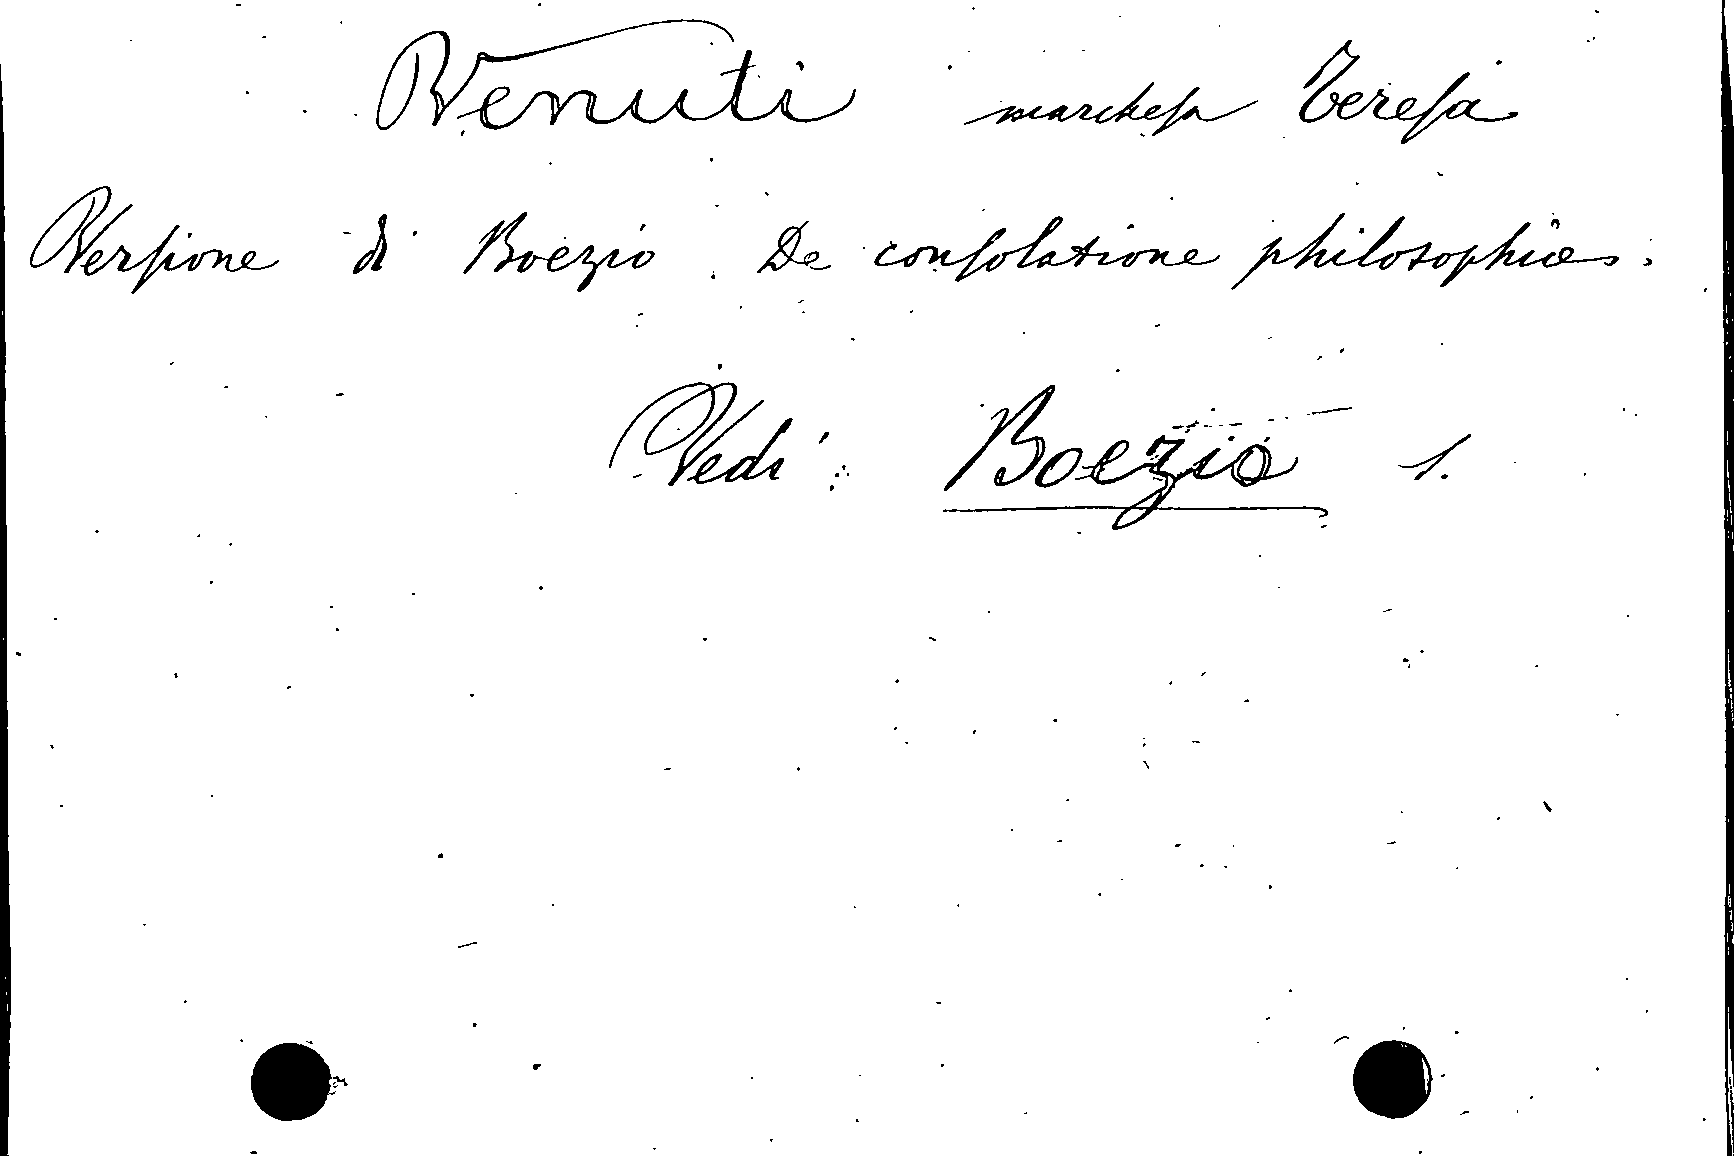 Venuti marchesa Teresa
Versione di Boezio. De consolatione philosophiae.
Vedi: Boezio 1.